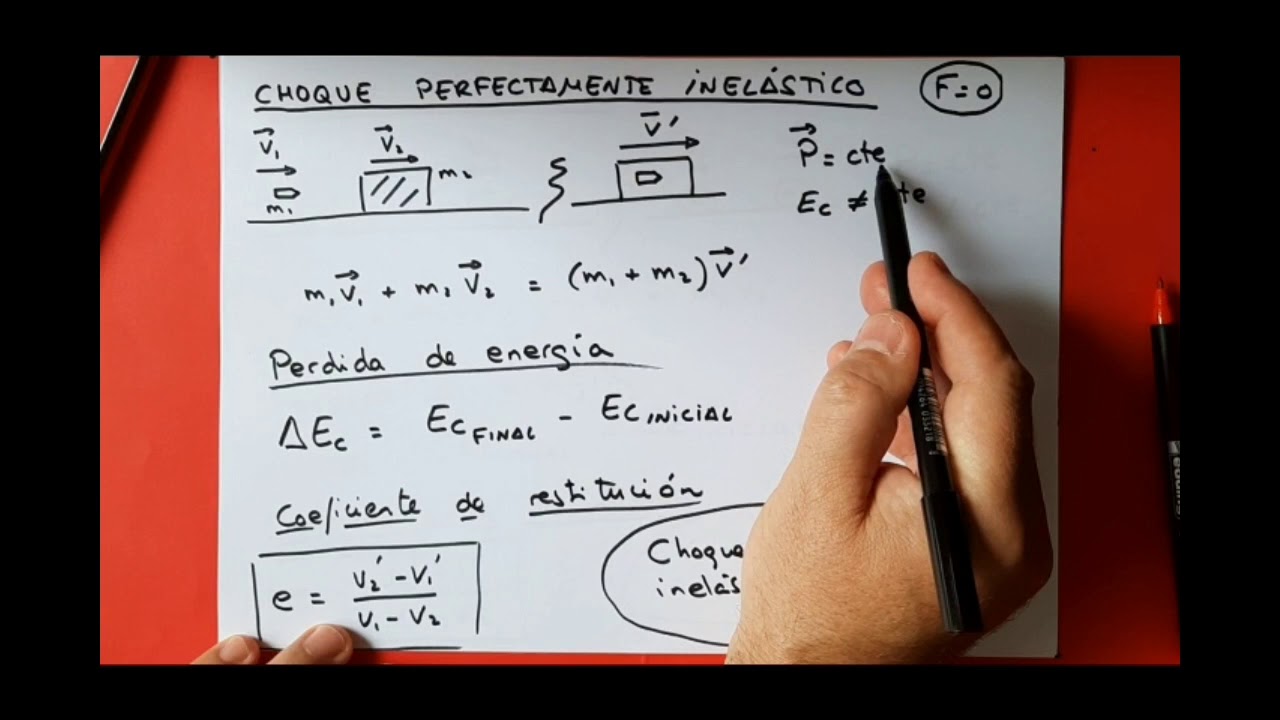 CHOQUE PERFECTAMENTE INELÁSTICO F=0
V₁ V₂ V'
m₁ m₂
P = cte
Ec ≠
m₁V₁ + m₂V₂ = (m₁ + m₂)V'
Perdida de energía
ΔEc = Ec FINAL - Ec INICIAL
Coeficiente de restitución
e = (V₂' - V₁') / (V₁ - V₂)
Choque